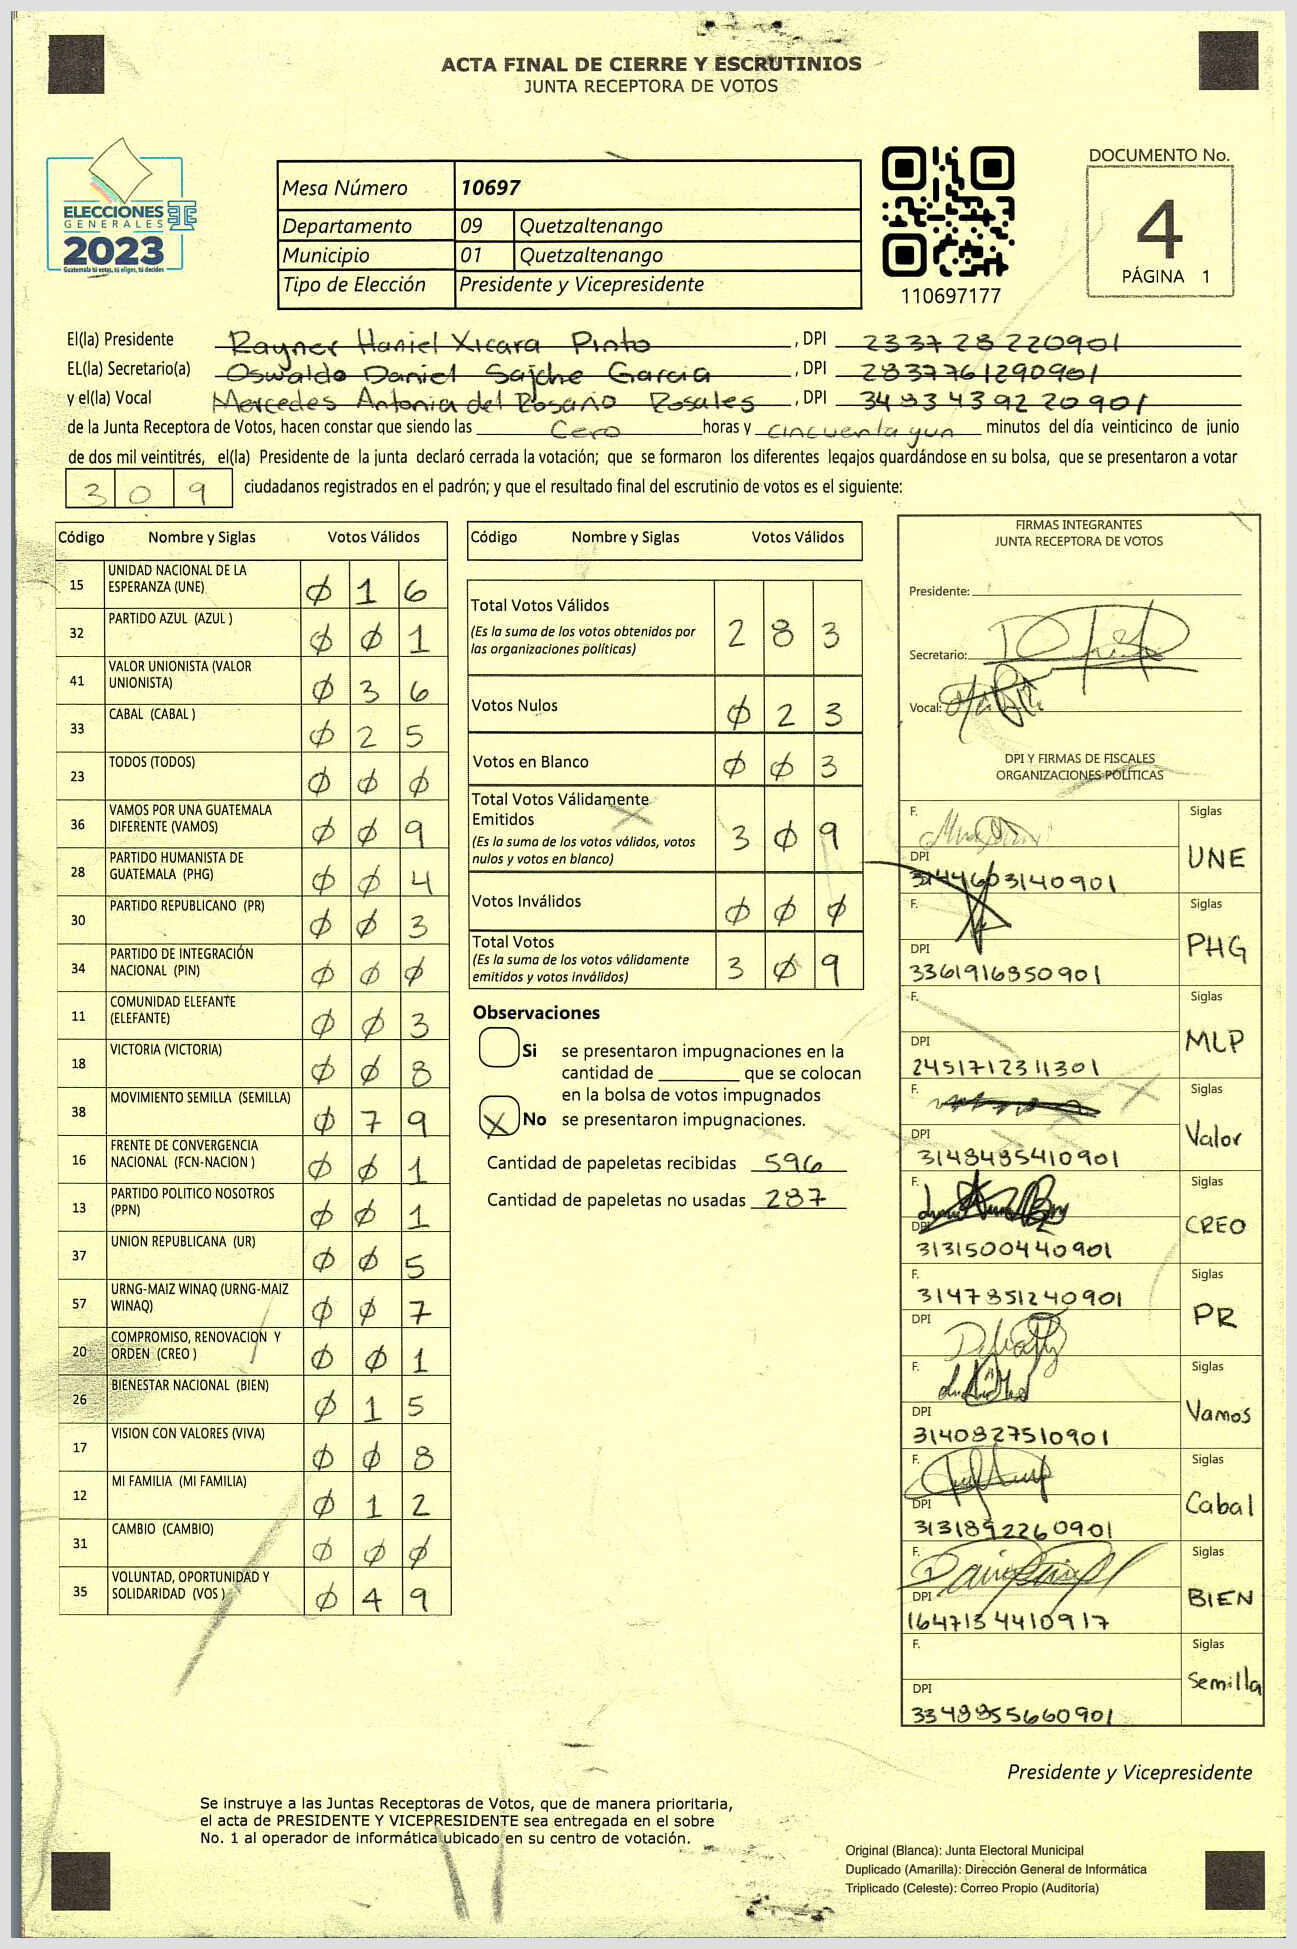 ACTA FINAL DE CIERRE Y ESCRUTINIOS
JUNTA RECEPTORA DE VOTOS
ELECCIONES
GENERALES
2023
Guatemala tú votas, tú eliges, tú decides
Mesa Número 10697
Departamento 09 Quetzaltenango
Municipio 01 Quetzaltenango
Tipo de Elección Presidente y Vicepresidente
110697177
DOCUMENTO No.
4
PÁGINA 1
El(la) Presidente Rayner Haniel Xicara Pinto, DPI 233728220901
EL(la) Secretario(a) Oswaldo Daniel Sajche Garcia, DPI 2837761290901
y el(la) Vocal Mercedes Antonia del Rosario Rosales, DPI 3483439220901
de la Junta Receptora de Votos, hacen constar que siendo las Cero horas y cincuenta y un minutos del día veinticinco de junio
de dos mil veintitrés, el(la) Presidente de la junta declaró cerrada la votación; que se formaron los diferentes legajos guardándose en su bolsa, que se presentaron a votar
309 ciudadanos registrados en el padrón; y que el resultado final del escrutinio de votos es el siguiente:
Código Nombre y Siglas Votos Válidos
15 UNIDAD NACIONAL DE LA ESPERANZA (UNE) 0 1 6
32 PARTIDO AZUL (AZUL ) 0 0 1
41 VALOR UNIONISTA (VALOR UNIONISTA) 0 3 6
33 CABAL (CABAL ) 0 2 5
23 TODOS (TODOS) 0 0 0
36 VAMOS POR UNA GUATEMALA DIFERENTE (VAMOS) 0 0 9
28 PARTIDO HUMANISTA DE GUATEMALA (PHG) 0 0 4
30 PARTIDO REPUBLICANO (PR) 0 0 3
34 PARTIDO DE INTEGRACIÓN NACIONAL (PIN) 0 0 0
11 COMUNIDAD ELEFANTE (ELEFANTE) 0 0 3
18 VICTORIA (VICTORIA) 0 0 8
38 MOVIMIENTO SEMILLA (SEMILLA) 0 7 9
16 FRENTE DE CONVERGENCIA NACIONAL (FCN-NACION ) 0 0 1
13 PARTIDO POLITICO NOSOTROS (PPN) 0 0 1
37 UNION REPUBLICANA (UR) 0 0 5
57 URNG-MAIZ WINAQ (URNG-MAIZ WINAQ) 0 0 7
20 COMPROMISO, RENOVACION Y ORDEN (CREO ) 0 0 1
26 BIENESTAR NACIONAL (BIEN) 0 1 5
17 VISION CON VALORES (VIVA) 0 0 8
12 MI FAMILIA (MI FAMILIA) 0 1 2
31 CAMBIO (CAMBIO) 0 0 0
35 VOLUNTAD, OPORTUNIDAD Y SOLIDARIDAD (VOS ) 0 4 9
Código Nombre y Siglas Votos Válidos
Total Votos Válidos 2 8 3
(Es la suma de los votos obtenidos por
las organizaciones políticas)
Votos Nulos 0 2 3
Votos en Blanco 0 0 3
Total Votos Válidamente
Emitidos 3 0 9
(Es la suma de los votos válidos, votos
nulos y votos en blanco)
Votos Inválidos 0 0 0
Total Votos 3 0 9
(Es la suma de los votos válidamente
emitidos y votos inválidos)
Observaciones
Si se presentaron impugnaciones en la
cantidad de ________ que se colocan
en la bolsa de votos impugnados
X No se presentaron impugnaciones.
Cantidad de papeletas recibidas 596
Cantidad de papeletas no usadas 287
FIRMAS INTEGRANTES
JUNTA RECEPTORA DE VOTOS
Presidente:
Secretario:
Vocal:
DPI Y FIRMAS DE FISCALES
ORGANIZACIONES POLÍTICAS
F. Siglas
UNE
DPI
3144603140901
F. Siglas
PHG
DPI
3361916850901
F. Siglas
MLP
DPI
2451712311301
F. Siglas
Valor
DPI
3148485410901
F. Siglas
CREO
DPI
3131500440901
F. Siglas
3147851240901
PR
DPI
F. Siglas
Vamos
DPI
3140827510901
F. Siglas
Cabal
DPI
3131892260901
F. Siglas
BIEN
DPI
1647154410917
F. Siglas
Semilla
DPI
3348855660901
Presidente y Vicepresidente
Se instruye a las Juntas Receptoras de Votos, que de manera prioritaria,
el acta de PRESIDENTE Y VICEPRESIDENTE sea entregada en el sobre
No. 1 al operador de informática ubicado en su centro de votación.
Original (Blanca): Junta Electoral Municipal
Duplicado (Amarilla): Dirección General de Informática
Triplicado (Celeste): Correo Propio (Auditoría)